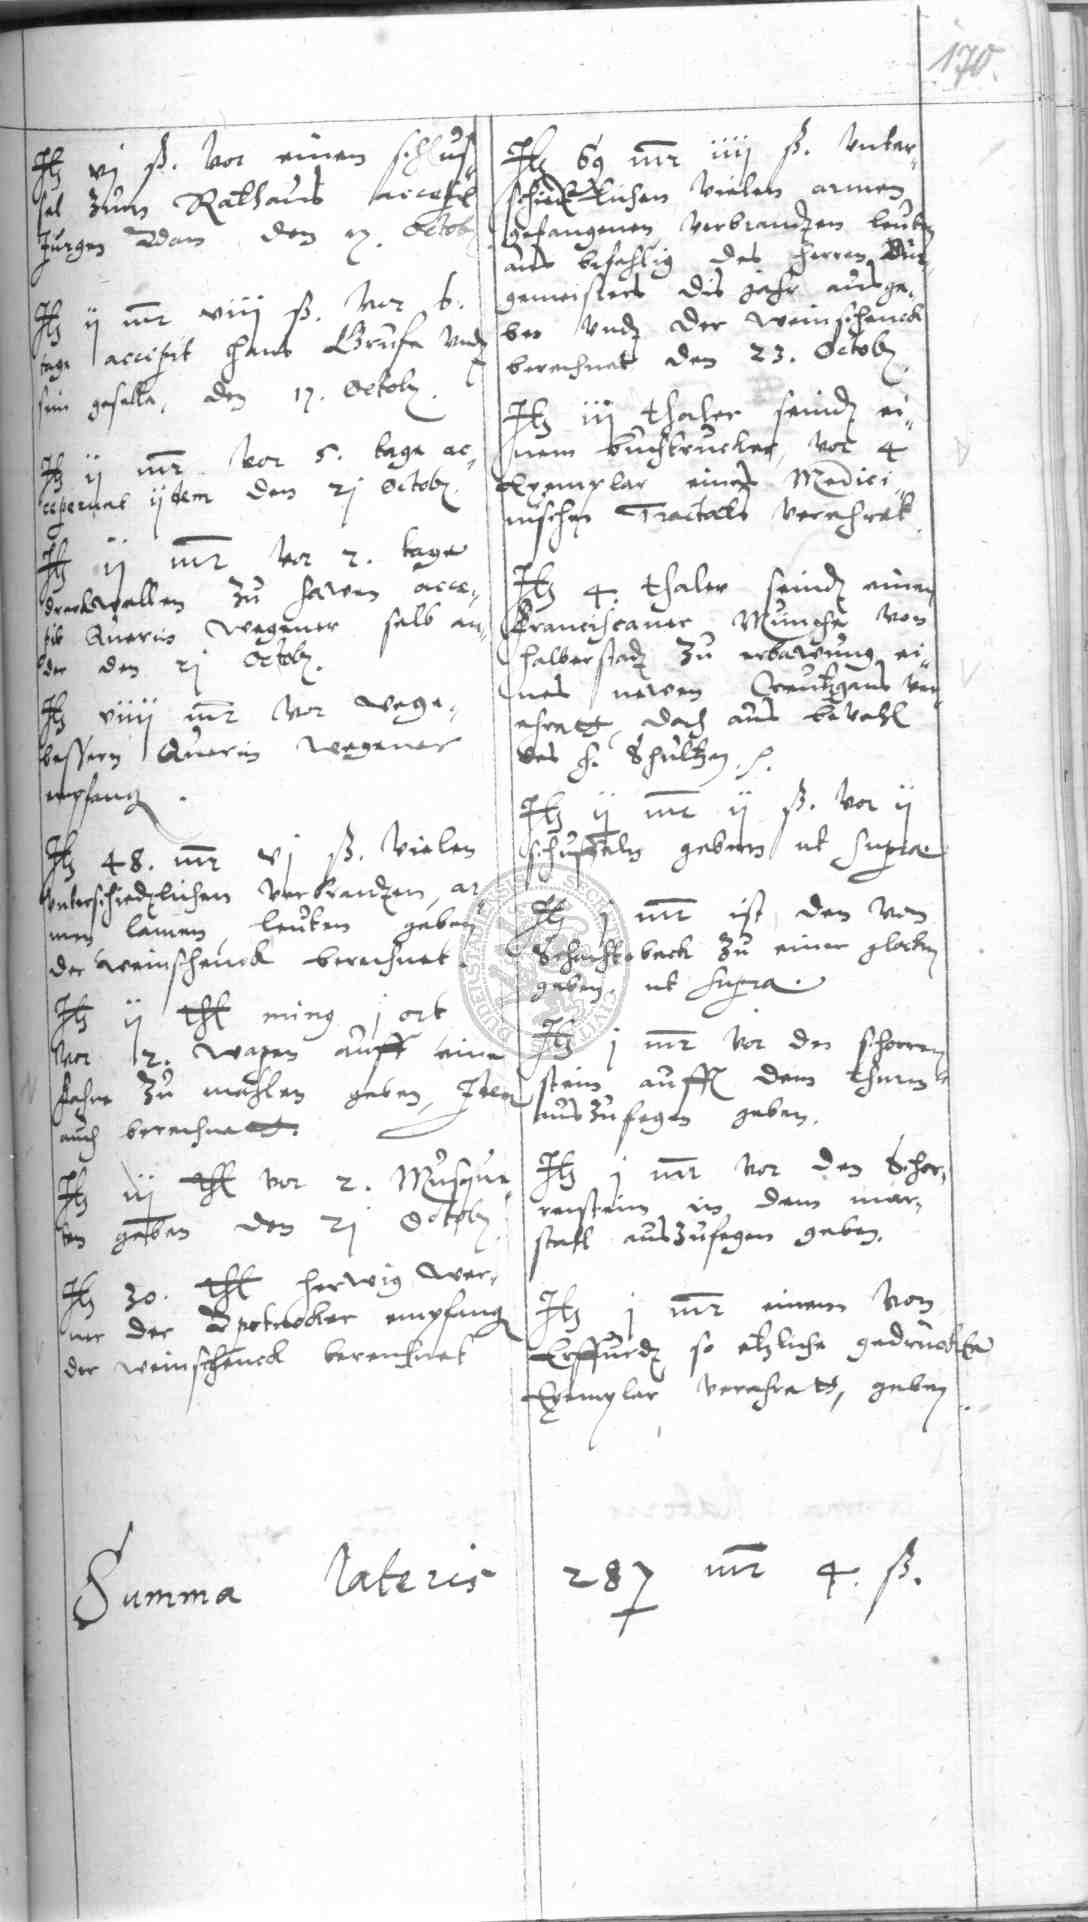 170.
Itz vj ß. vor einen schlus-
sel zum Rathaus accepit
Jurgen Adam den 17. Octob
Itz ij mr viij ß. vor 6.
tage accepit Hans Grufe undt
sin geselle, den 17. Octob.
Itz ij mr vor 5. tage ac-
ceperunt ijdem den 21 Octob.
Itz ij mr vor 2. tage
dreckwallen zu hawen acce-
pit Querin Wegener selb an-
der den 21 Octob.
Itz viiij mr vor wege-
bessern Querin Wegener
empfang.
Itz 48. mr vj ß. vielen
unterschiedtlichen verbrandten, ar-
men lamen leuten geben
der weinschenck berechnet.
Itz ij thl ming j ort
vor 2. wapen auff eine
fahne zu mahlen geben, Idem
auch berechnett.
Itz iij thl vor 2. Musque-
ten geben den 21 Octob
Itz 30. thl Herwig Wer-
ner der Apotecker empfang
der weinschenck berechnet
Itz 69 mr iiij ß. unter-
schiedtlichen vielen armen
gefangenen verbrandten leuten
aus befehlig des herren Bur-
gemeisters dis jahr ausge-
ben undt der weinschenck
berechnet den 23. Octob.
Itz iij thaler seindt ei-
nem buchtrucker, vor 4
Exemplar eines Medici-
nischen Tractats verehret.
Itz 4. thaler seindt einen
Franciscaner Münche von
Halberstadt zu erbawung ei-
nes newen Creutzgans ver-
ehrett, doch aus bevehl
des H. Schultzen.
Itz ij mr ij ß. vor ij
schusseln geben ut supra
Itz j mr ist den von
Schachtebeck zu einer glocken
geben. ut supra.
Itz j mr vor den schorren-
stein auff dem thurm
auszufegen geben.
Itz j mr vor den Schor-
renstein in dem mar-
stall auszufegen geben.
Itz j mr einem von
Erffurdt so etzliche gedruckte
Exemplar verehrett, geben.
Summa lateris 287 mr 4. ß.